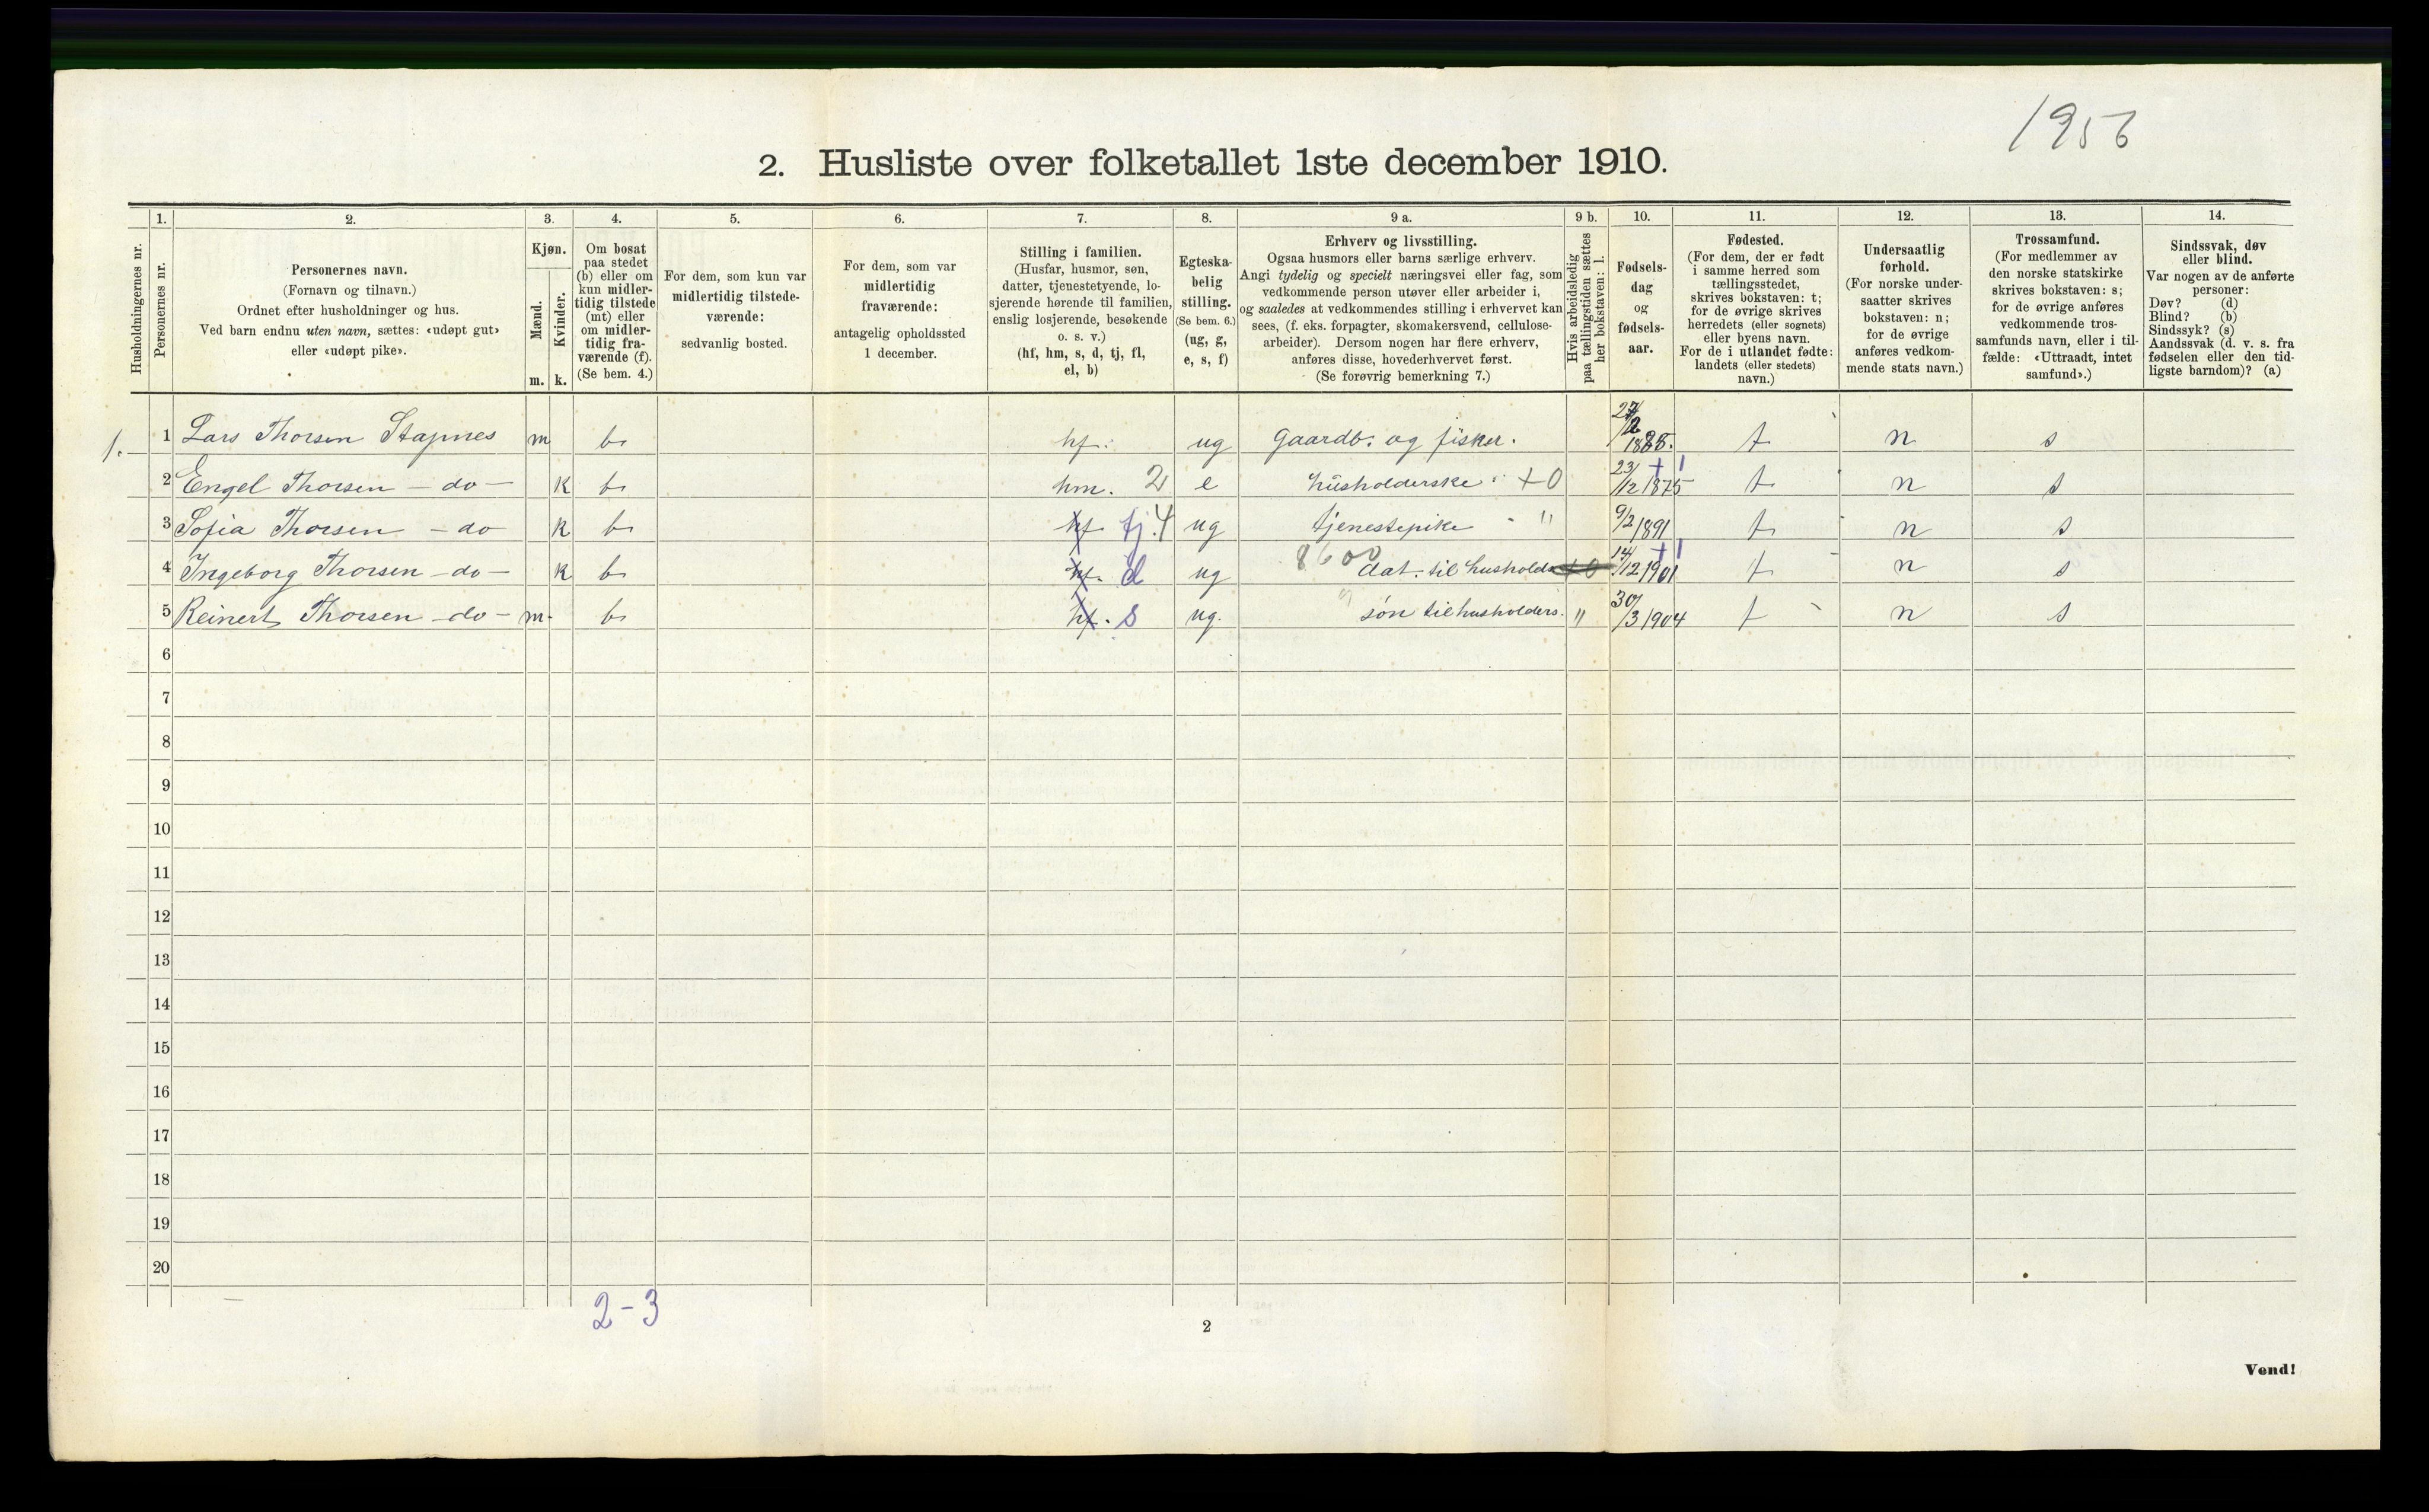 1956
2. Husliste over folketallet 1ste december 1910.
Husholdningernes nr.
1.
Personernes nr.
2.
Personernes navn.
(Fornavn og tilnavn.)
Ordnet efter husholdninger og hus.
Ved barn endnu uten navn, sættes: «udøpt gut»
eller «udøpt pike».
3.
Kjøn.
Mænd.
Kvinder.
m. k.
4.
Om bosat
paa stedet
(b) eller om
kun midler-
tidig tilstede
(mt) eller
om midler-
tidig fra-
værende (f).
(Se bem. 4.)
5.
For dem, som kun var
midlertidig tilstede-
værende:
sedvanlig bosted.
6.
For dem, som var
midlertidig
fraværende:
antagelig opholdssted
1 december.
7.
Stilling i familien.
(Husfar, husmor, søn,
datter, tjenestetyende, lo-
sjerende hørende til familien,
enslig losjerende, besøkende
o. s. v.)
(hf, hm, s, d, tj, fl,
el, b)
8.
Egteska-
belig
stilling.
(Se bem. 6.)
(ug, g,
e, s, f)
9 a.
Erhverv og livsstilling.
Ogsaa husmors eller barns særlige erhverv.
Angi tydelig og specielt næringsvei eller fag, som
vedkommende person utøver eller arbeider i,
og saaledes at vedkommendes stilling i erhvervet kan
sees, (f. eks. forpagter, skomakersvend, cellulose-
arbeider). Dersom nogen har flere erhverv,
anføres disse, hovederhvervet først.
(Se forøvrig bemerkning 7.)
9 b.
Hvis arbeidsledig
paa tællingstiden sættes
her bokstaven: l.
10.
Fødsels-
dag
og
fødsels-
aar.
11.
Fødested.
(For dem, der er født
i samme herred som
tællingsstedet,
skrives bokstaven: t;
for de øvrige skrives
herredets (eller sognets)
eller byens navn.
For de i utlandet fødte:
landets (eller stedets)
navn.)
12.
Undersaatlig
forhold.
(For norske under-
saatter skrives
bokstaven: n;
for de øvrige
anføres vedkom-
mende stats navn.)
13.
Trossamfund.
(For medlemmer av
den norske statskirke
skrives bokstaven: s;
for de øvrige anføres
vedkommende tros-
samfunds navn, eller i til-
fælde: «Uttraadt, intet
samfund».)
14.
Sindssvak, døv
eller blind.
Var nogen av de anførte
personer:
Døv? (d)
Blind? (b)
Sindssyk? (s)
Aandssvak (d. v. s. fra
fødselen eller den tid-
ligste barndom)? (a)
1. 1 Lars Thorsen Stapnes m b hf. ug Gaardb. og fisker. 1888. t n s
2 Engel Thorsen - do - k b hm. 2 e husholderske +0 23/12 1875 t n s
3 Sofia Thorsen - do k b hf tj. 4 ug tjenestepike " 9/2 1891 t n s
8600
4 Ingeborg Thorsen - do - k b hf. d ug dat. til husholds +0 14/12 1901 t n s
5 Reinert Thorsen - do - m. b hf. s ug. søn til husholders. " 30/3 1904 t n s
6
7
8
9
10
11
12
13
14
15
16
17
18
19
20
2-3
2
Vend!